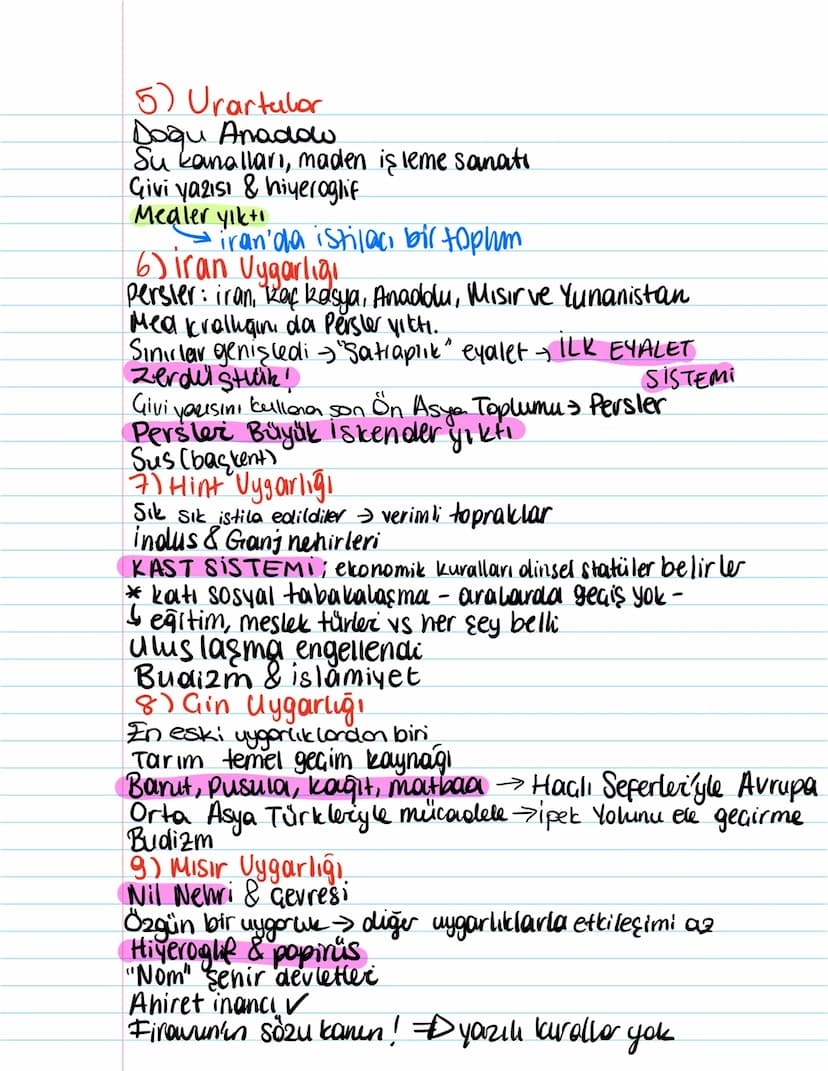 5) Urartular
Doğu Anadolu
Su kanalları, maden işleme sanatı
Çivi yazısı & hiyeroglif
Medler yıktı
→ iran'da istilacı bir toplum
6) iran Uygarlığı
Persler: iran, Kafkasya, Anadolu, Mısır ve Yunanistan
Med krallığını da Persler yıktı.
Sınırlar genişledi → "Satraplık" eyalet → İLK EYALET
SİSTEMİ
Zerdüştlük!
Çivi yazısını kullanan son Ön Asya Toplumu → Persler
Persleri Büyük İskender yıktı
Sus (başkent)
7) Hint Uygarlığı
Sık sık istila edildiler → verimli topraklar
İndus & Ganj nehirleri
KAST SİSTEMİ; ekonomik kuralları dinsel statüler belirler
* katı sosyal tabakalaşma - aralarda geçiş yok -
↳ eğitim, meslek türleri vs her şey belli
Uluslaşma engellendi
Budizm & islamiyet
8) Çin Uygarlığı
En eski uygarlıklardan biri
Tarım temel geçim kaynağı
Barut, pusula, kağıt, matbaa → Haçlı Seferleri'yle Avrupa
Orta Asya Türkleriyle mücadele → İpek Yolunu ele geçirme
Budizm
9) Mısır Uygarlığı
Nil Nehri & çevresi
Özgün bir uygarlık → diğer uygarlıklarla etkileşimi az
Hiyeroglif & papirüs
"Nom" şehir devletleri
Ahiret inancı ✓
Firavun'un sözü kanun! ⇒ yazılı kurallar yok